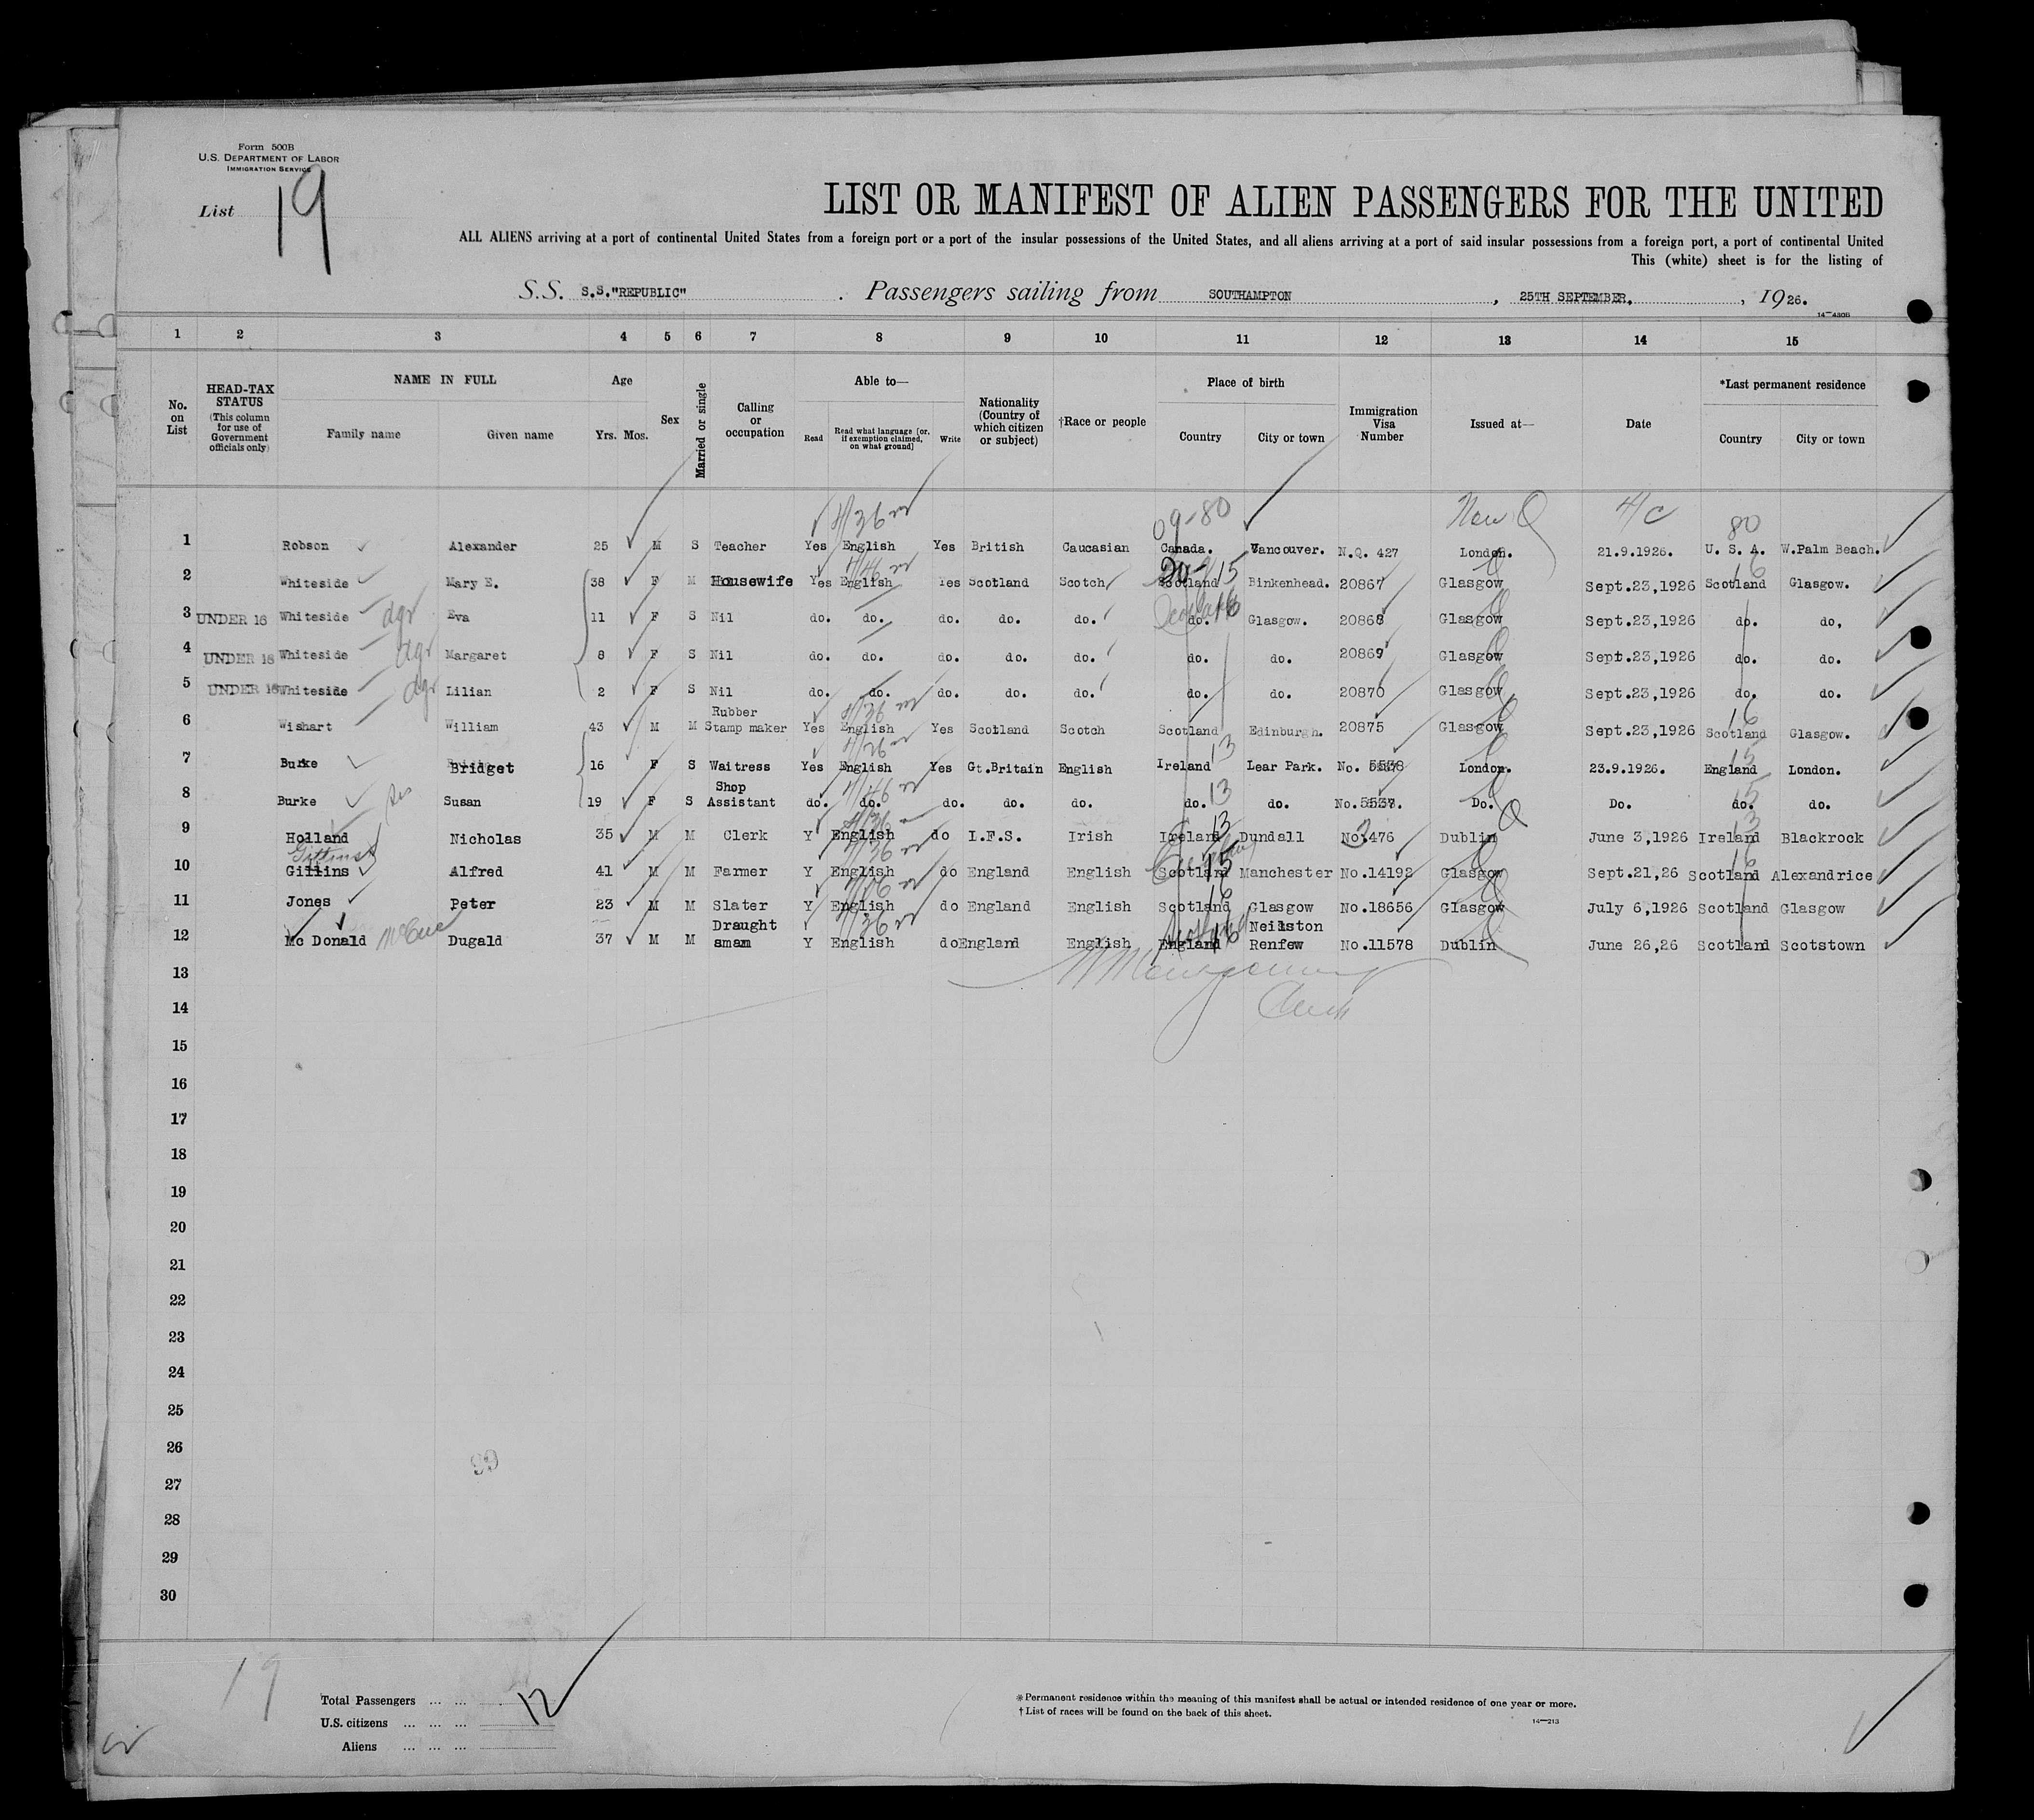 Form 500B
U.S. DEPARTMENT OF LABOR
IMMIGRATION SERVICE
List 19
LIST OR MANIFEST OF ALIEN PASSENGERS FOR THE UNITED
ALL ALIENS arriving at a port of continental United States from a foreign port or a port of the insular possessions of the United States, and all aliens arriving at a port of said insular possessions from a foreign port, a port of continental United
This (white) sheet is for the listing of
S.S. S.S."REPUBLIC" . Passengers sailing from SOUTHAMPTON , 25TH SEPTEMBER, , 1926.
14-430B
1 2 3 4 5 6 7 8 9 10 11 12 13 14 15
No. on List
HEAD-TAX STATUS (This column for use of Government officials only)
NAME IN FULL
Family name Given name
Age
Yrs. Mos.
Sex
Married or single
Calling or occupation
Able to—
Read Read what language [or, if exemption claimed, on what ground] Write
Nationality (Country of which citizen or subject)
†Race or people
Place of birth
Country City or town
Immigration Visa Number
Issued at—
Date
*Last permanent residence
Country City or town
4/36 09-80 New Q 4/C 80
1 Robson Alexander 25 M S Teacher Yes English Yes British Caucasian Canada. Vancouver. N.Q. 427 London. 21.9.1926. U. S. A. W.Palm Beach.
2 Whiteside Mary E. 38 F M Housewife Yes English Yes Scotland Scotch Scotland 15 Binkenhead. 20867 Glasgow Sept.23,1926 Scotland 16 Glasgow.
3 UNDER 16 Whiteside dgr Eva 11 F S Nil do. do. do. do. do. do. Scotland 16 Glasgow. 20868 Glasgow Sept.23,1926 do. do,
4 UNDER 16 Whiteside dgr Margaret 8 F S Nil do. do. do. do. do. do. do. 20869 Glasgow Sept.23,1926 do. do.
5 UNDER 16 Whiteside dgr Lilian 2 F S Nil do. do. do. do. do. do. do. 20870 Glasgow Sept.23,1926 do. do.
6 Wishart William 43 M M Rubber Stamp maker Yes English Yes Scotland Scotch Scotland Edinburgh. 20875 Glasgow Sept.23,1926 Scotland 16 Glasgow.
7 Burke Bridget 16 F S Waitress Yes English Yes Gt.Britain English Ireland 13 Lear Park. No. 5538 London. 23.9.1926. England 15 London.
8 Burke sis Susan 19 F S Shop Assistant do. do. do. do. do. do. 13 do. No.5537. Do. Do. do. 15 do.
9 Holland Nicholas 35 M M Clerk Y English do I.F.S. Irish Ireland 13 Dundall No.476 Dublin June 3,1926 Ireland 13 Blackrock
Gittins
10 Gillins Alfred 41 M M Farmer Y English do England English Scotland 15 Manchester No.14192 Glasgow Sept.21,26 Scotland 16 Alexandrice
11 Jones Peter 23 M M Slater Y English do England English Scotland 16 Glasgow No.18656 Glasgow July 6,1926 Scotland Glasgow
12 Mc Donald McCue Dugald 37 M M Draught amam Y English do England English England Scotland 16 Neilston Renfew No.11578 Dublin June 26,26 Scotland Scotstown
13
14
15
16
17
18
19
20
21
22
23
24
25
26
27
28
29
30
99
19
Total Passengers ... ... 12
U.S. citizens ... ... ...
Aliens ... ... ...
*Permanent residence within the meaning of this manifest shall be actual or intended residence of one year or more.
†List of races will be found on the back of this sheet.
14-213